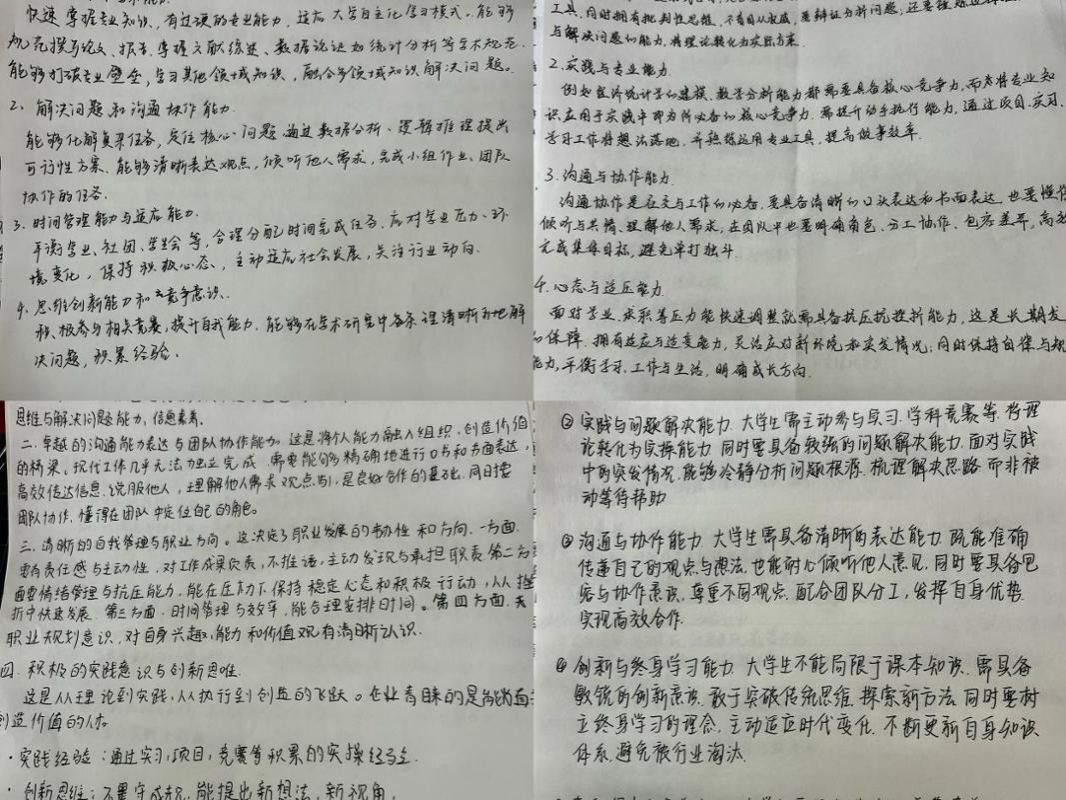 快速掌握专业知识，有过硬的专业能力，适应大学自主化学习模式。能够
规范撰写论文、报告，掌握文献综述、数据论证如统计分析等学术规范。
能够打破专业壁垒，学习其他领域知识，融合多领域知识解决问题。
2. 解决问题和沟通协作能力.
能够化解复杂任务，定位核心问题，通过数据分析、逻辑推理提出
可行性方案。能够清晰表达观点，倾听他人需求，完成小组作业、团队
协作的任务.
3. 时间管理能力与适应能力.
平衡学业、社团、学生会等，合理分配时间完成任务。应对学业压力、环
境变化，保持积极心态，主动适应社会发展，关注行业动向.
4. 思维创新能力和竞争意识.
积极参与相关竞赛，提升自我能力. 能够在学术研究中条理清晰地解
决问题，积累经验.
工具，同时拥有批判性思维，不盲目从权威，要辩证分析问题，还要
与解决问题的能力，将理论转化为实际方案.
2. 实践与专业能力.
例如经济统计学的建模、数学分析能力都需要具备核心竞争力，而将专业知
识应用于实践中即为所必备的核心竞争力. 需提升动手执行能力，通过项目、实习、
学习工作将想法落地. 并熟练运用专业工具，提高做事效率.
3. 沟通与协作能力.
沟通协作是社交与工作的必备，要具备清晰的口头表达和书面表达，也要懂得
倾听与共情，理解他人需求，在团队中也要明确角色、分工协作、包容差异，高效
完成集体目标，避免单打独斗.
4. 心态与适压能力.
面对学业、求职等压力能快速调整就需具备抗压抗挫折能力，这是长期发
的保障. 拥有适应与适变能力，灵活应对新环境和突发情况；同时保持自律与规
能力，平衡学习、工作与生活，明确成长方向.
思维与解决问题能力，信息素养.
二. 卓越的沟通能力表达与团队协作能力。这是将个人能力融入组织、创造价值
的桥梁。现代工作几乎无法独立完成，需要能够精确地进行口书和书面表达，
高效传达信息、说服他人，理解他人需求、观点，是良好合作的基础. 同时要
团队协作，懂得在团队中定位自己的角色。
三. 清晰的自我管理与职业方向。这决定了职业发展的韧性和方向. 一方面.
要有责任感与主动性，对工作成果负责，不推诿，主动发现与承担职责. 第二方
面要情绪管理与抗压能力，能在压力下保持稳定心态和积极行动，从挫
折中快速发展. 第三方面. 时间管理与效率，能合理安排时间。第四方面，
职业规划意识，对自身兴趣，能力和价值观有清晰认识.
四. 积极的实践意识与创新思维.
这是从理论到实践，从执行到创造的飞跃。企业青睐的是能够
创造价值的人.
· 实践经验：通过实习，项目，竞赛等积累的实操经验.
· 创新思维：不墨守成规，能提出新想法，新视角.
② 实践与问题解决能力. 大学生需主动参与实习、学科竞赛等. 将理
论转化为实操能力. 同时要具备较强的问题解决能力. 面对实践
中的突发情况. 能够冷静分析问题根源. 梳理解决思路. 而非被
动等待帮助.
③ 沟通与协作能力. 大学生需具备清晰的表达能力. 既能准确
传递自己的观点与想法. 也能耐心倾听他人意见. 同时要具备包
容与协作意识，尊重不同观点. 配合团队分工，发挥自身优势.
实现高效合作.
④ 创新与终身学习能力. 大学生不能局限于课本知识. 需具备
敏锐的创新意识. 敢于突破传统思维. 探索新方法. 同时要树
立终身学习的理念. 主动适应时代变化. 不断更新自身知识
体系. 避免被行业淘汰.